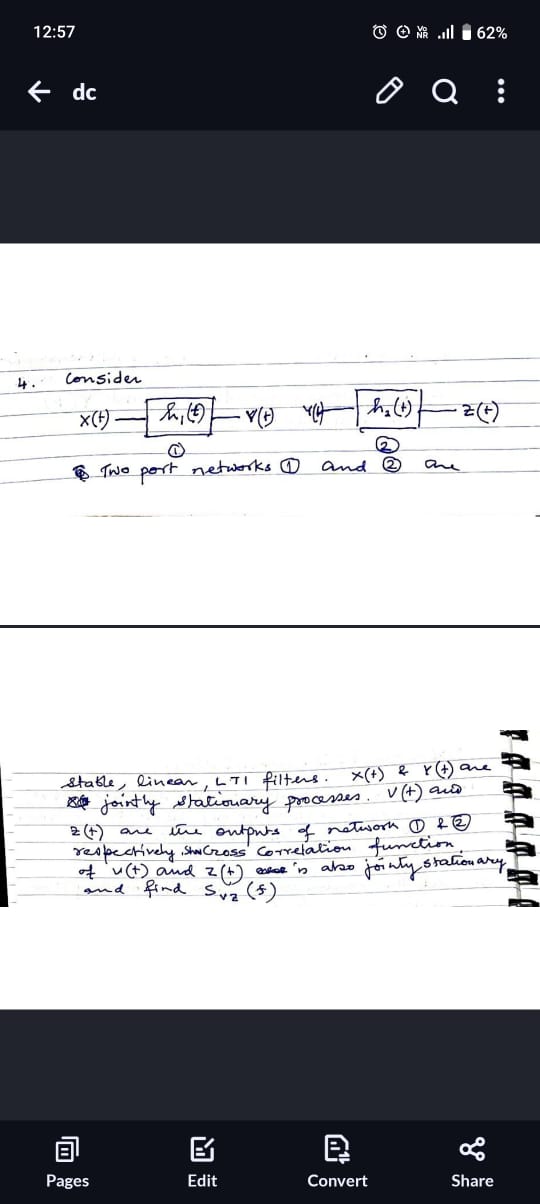 12:57
Vo NR 62%
dc
4. Consider
x(t) h₁(t) V(t) Y(t) h₂(t) z(t)
① ②
Two port networks ① and ② are
stable, linear, LTI filters. x(t) & Y(t) are
jointly stationary processes. V(t) and
z(t) are the outputs of network ① & ②
respectively. Show Cross Correlation function
of v(t) and z(t) is also jointly stationary
and find Svz(f)
Pages Edit Convert Share